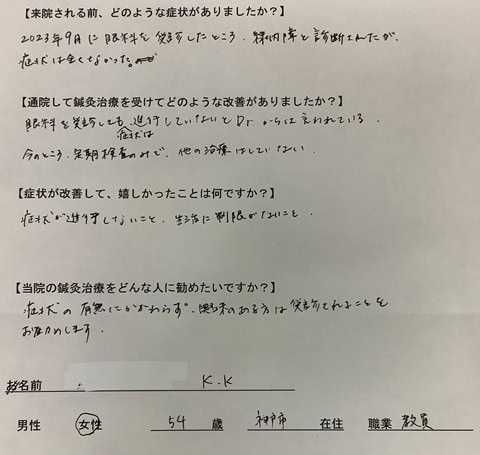 【来院される前、どのような症状がありましたか？】
2023年9月に眼科を受診したところ、緑内障と診断されたが、
症状は全くなかった。
【通院して鍼灸治療を受けてどのような改善がありましたか？】
眼科を受診しても、進行していないとDr.からは言われている。
症状は
今のところ、定期検査のみで、他の治療はしていない。
【症状が改善して、嬉しかったことは何ですか？】
症状が進行しないこと、生活に制限がないこと。
【当院の鍼灸治療をどんな人に勧めたいですか？】
症状の有無にかかわらず、興味のある方は受診されることを
お勧めします。
お名前 K.K
男性 女性 54 歳 神戸市 在住 職業 教員